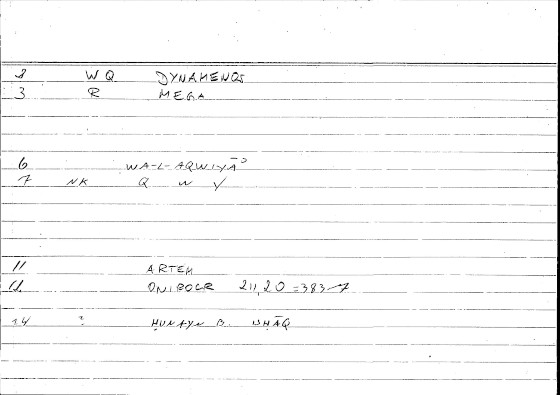 2 WQ DYNAMENOS
3 R MEGA
6 WA-L-AQWIYĀʾ
7 NK Q W Y
11 ARTEM
12 ONIROCR 211,20 = 383-7
14 ? ḤUNAYN B. ISḤĀQ